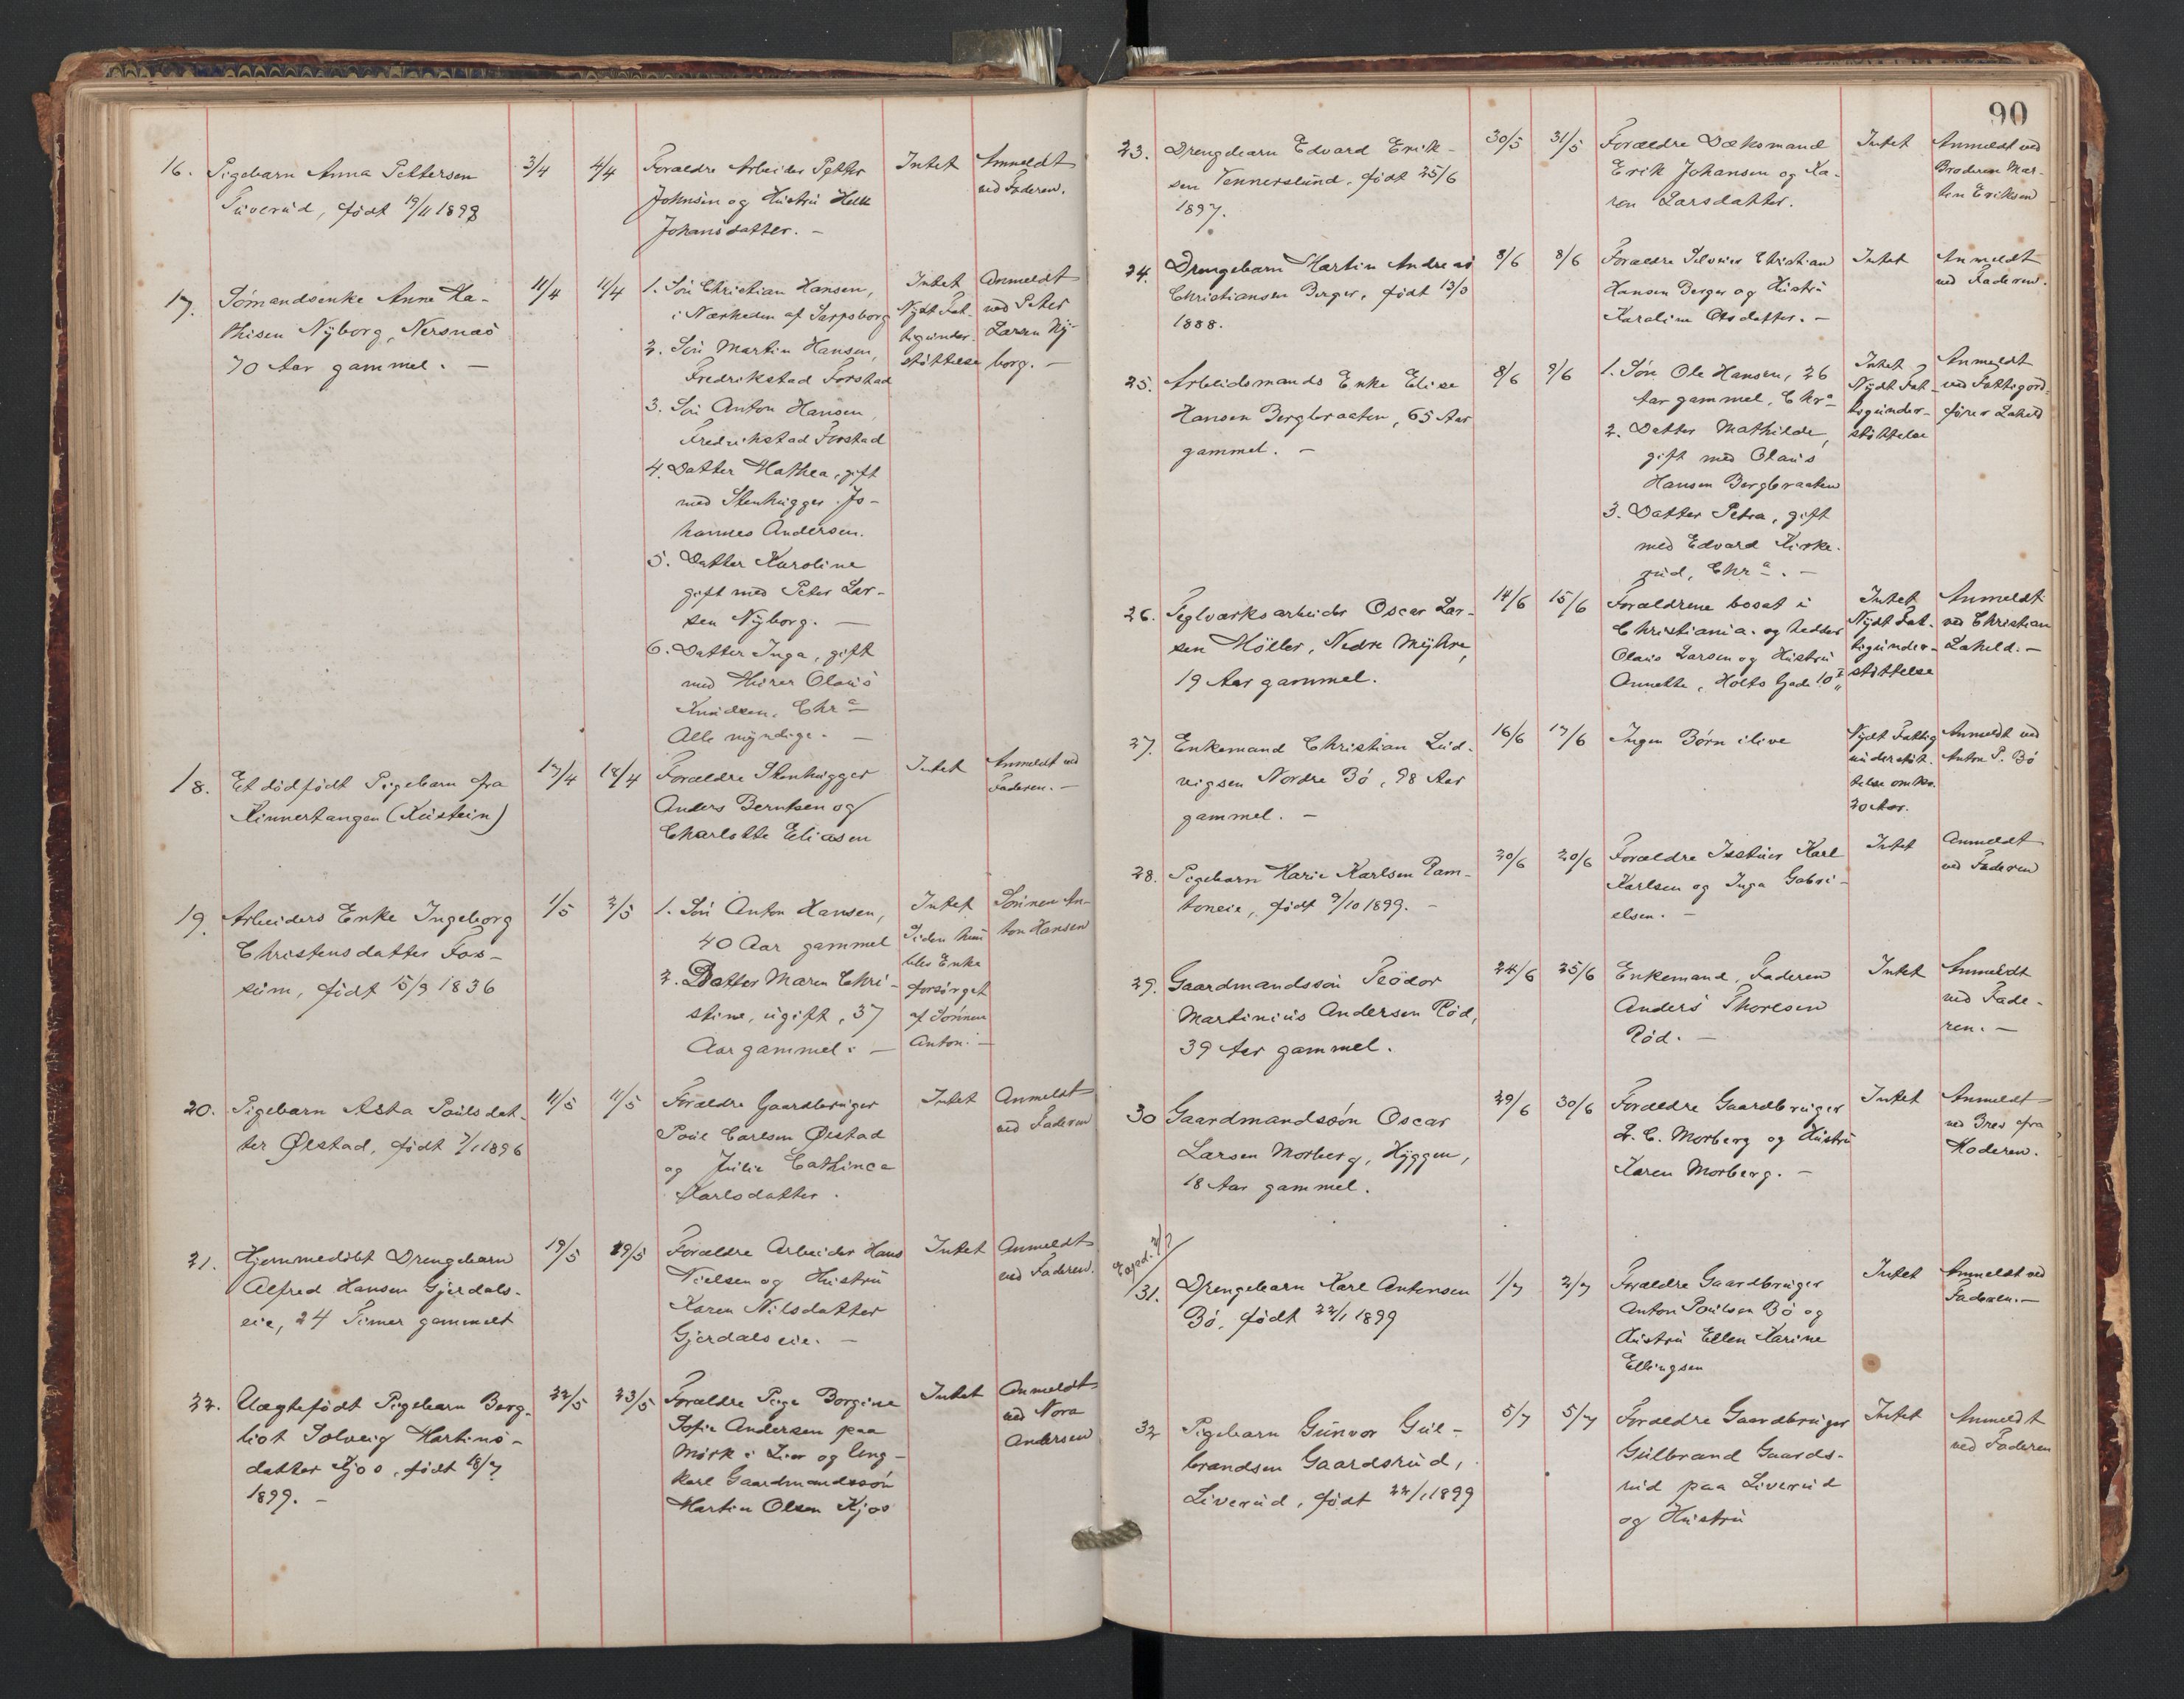 16. Pigebarn Anna Pettersen 3/4 4/4 Forældre Arbeider Petter Intet Anmeldt
Tuverud, født 19/11 1898 Johnsen og Hustru Helle ved Faderen.
Johansdatter. -
17. Sømandsenke Anne Ka- 11/4 11/4 1. Søn Christian Hansen, Intet Anmeldt
thisen Nyborg, Nersnæs i Nærheden af Sarpsborg Nydt Fat- ved Peter
70 Aar gammel. - 2. Søn Martin Hansen, tigunder- Larsen Ny-
Fredrikstad Forstad støttelse borg. -
3. Søn Anton Hansen,
Fredrikstad Forstad
4. Datter Mathea, gift
med Stenhugger Jo-
hannes Andersen.
5. Datter Karoline
gift med Peter Lar-
sen Nyborg. -
6. Datter Inga, gift
med Murer Olaus
Knudsen, Chr a
Alle myndige. -
18. Et dødfødt Pigebarn fra 17/4 18/4 Forældre Stenhugger Intet Anmeldt ved
Kinnertangen (Kustein) Anders Berntsen og Faderen. -
Charlotte Eliasen
19. Arbeiders Enke Ingeborg 1/5 2/5 1. Søn Anton Hansen, Intet Sønnen An-
Christensdatter Fos- 40 Aar gammel Siden hun ton Hansen
sum, født 15/9 1836 2. Datter Maren Chri- blev Enke
stine, ugift, 37 forsørget
Aar gammel. - af Sønnen
Anton. -
20. Pigebarn Asta Poulsdat- 11/5 11/5 Forældre Gaardbruger Intet Anmeldt
ter Ølstad, født 7/1 1896 Poul Carlsen Ølstad ved Faderen
og Julie Cathinca
Karlsdatter.
21. Hjemmedøbt Drengebarn 19/5 19/5 Forældre Arbeider Hans Intet Anmeldt
Alfred Hansen Gjerdals- Nielsen og Hustru ved Faderen.
eie, 24 Timer gammelt Karen Nilsdatter
Gjerdalseie. -
22. Uægtefødt Pigebarn Borg- 22/5 23/5 Forældre Pige Borgine Intet Anmeldt
liot Solveig Martins- Sofie Andersen paa ved Nora
datter Kjos, født 18/7 Mørk i Lier og Ung- Andersen
1899. - karl Gaardmandssøn
Martin Olsen Kjos
90
23. Drengebarn Edvard Erik- 30/5 31/5 Forældre Dæksmand Intet Anmeldt ved
sen Vennerslund, født 25/6 Erik Johansen og Ka- Broderen Mar-
1897. ren Larsdatter. tin Eriksen
24. Drengebarn Martin Andreas 8/6 8/6 Forældre Selveier Christian Intet Anmeldt
Christiansen Berger, født 13/3 Hansen Berger og Hustru ved Faderen.
1888. Karoline Olsdatter. -
25. Arbeidsmands Enke Elise 8/6 9/6 1. Søn Ole Hansen, 26 Intet Anmeldt
Hansen Bergbraaten, 65 Aar Aar gammel, Chr a Nydt Fat- ved Fattigord-
gammel. - 2. Datter Mathilde, tigunder- fører Laheld
gift med Olaus støttelse
Hansen Bergbraaten
3. Datter Petra, gift
med Edvard Kirke-
rud, Chr a. -
26. Teglværksarbeider Oscar Lar- 14/6 15/6 Forældrene bosat i Intet Anmeldt
sen Møller, Nedre Myhre, Christiania og hedder Nydt Fat- ved Christian
19 Aar gammel. Olaus Larsen og Hustru tigunder- Laheld. -
Annette, Holts Gade 10 støttelse
27. Enkemand Christian Lud- 16/6 17/6 Ingen Børn ilive Nydt Fattig Anmeldt ved
vigsen Nordre Bø, 98 Aar understøt- Anton P. Bø
gammel. - telse omkr.
20 Aar.
28. Pigebarn Marie Karlsen Ram- 20/6 20/6 Forældre Karl Intet Anmeldt
toneie, født 9/10 1899. - Karlsen og Inga Gabri- ved Faderen
elsen. -
29. Gaardmandssøn Teodor 24/6 25/6 Enkemand, Faderen Intet Anmeldt
Martinius Andersen Rød, Anders Thorlsen ved Fade-
39 Aar gammel. Rød. - ren. -
30 Gaardmandssøn Oscar 29/6 30/6 Forældre Gaardbruger Intet Anmeldt
Larsen Morberg, Hyggen, L. C. Morberg og Hustru ved Brev fra
18 Aar gammel. Karen Morberg. - Moderen.
Exped. 3/7
31. Drengebarn Karl Antonsen 1/7 2/7 Forældre Gaardbruger Intet Anmeldt ved
Bø, født 22/1 1899 Anton Poulsen Bø og Faderen. -
Hustru Ellen Karine
Ellingsen
32 Pigebarn Gunvor Gul- 5/7 5/7 Forældre Gaardbruger Intet Anmeldt
brandsen Gaardsrud, Gulbrand Gaards- ved Faderen
Liverud, født 22/1 1899 rud paa Liverud
og Hustru